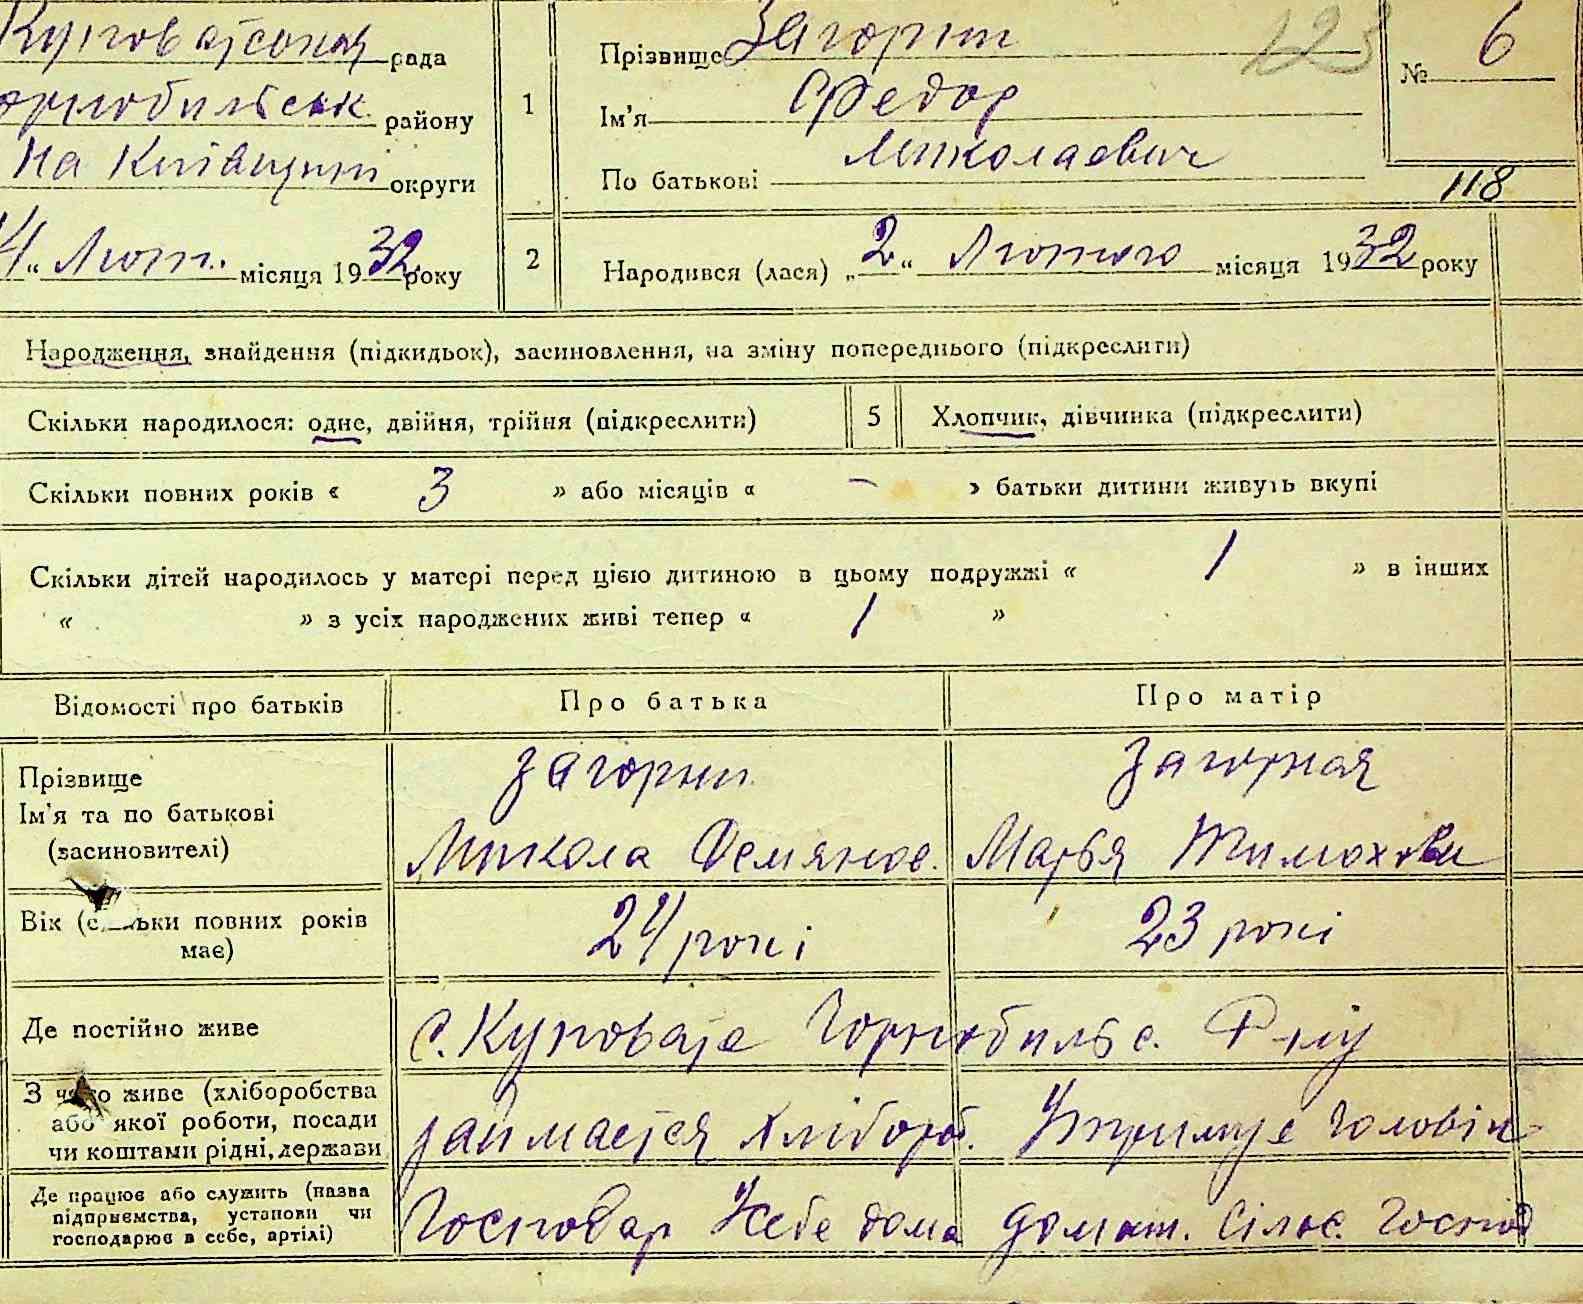 Куповатською рада
Чорнобильськ. району
На Київщині округи
4 " Лют. місяця 1932 року
1
Прізвище Загорний
Ім'я Федор
По батькові Миколаевич
123
№ 6
118
2
Народився (лася) „2" Лютого місяця 1932 року
Народження, знайдення (підкидьок), засиновлення, на зміну попереднього (підкреслити)
Скільки народилося: одне, двійня, трійня (підкреслити)
5
Хлопчик, дівчинка (підкреслити)
Скільки повних років « 3 » або місяців « – » батьки дитини живуть вкупі
Скільки дітей народилось у матері перед цією дитиною в цьому подружжі « 1 » в інших
« » з усіх народжених живі тепер « 1 »
Відомості про батьків Про батька Про матір
Прізвище
Ім'я та по батькові
(засиновителі)
Загорни
Микола Демянов.
Загорная
Марья Тимохови
Вік (скільки повних років
має)
24 рокі
23 рокі
Де постійно живе
с. Куповате Чорнобильс. Р-ну
З чого живе (хліборобства
або якої роботи, посади
чи коштами рідні, держави
займается хлібороб.
Утримує Чоловік
Де працює або служить (назва
підприємства, установи чи
господарює в себе, артілі)
Господар Усебе дома
домаш. Сільс. Господ